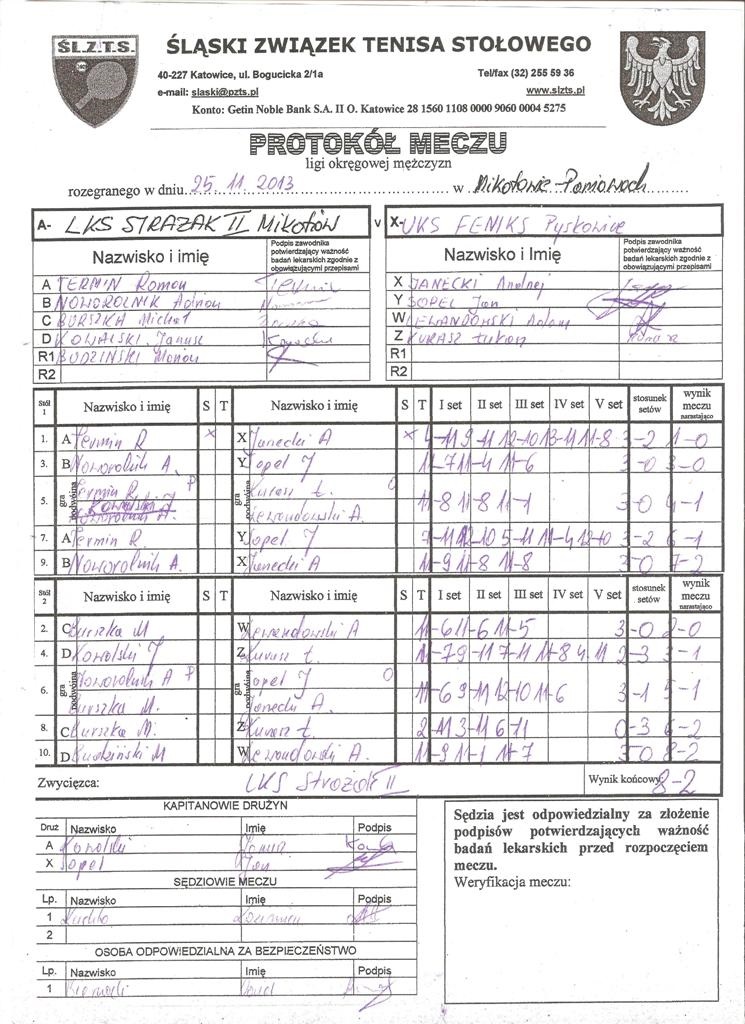 ŚL.Z.T.S.
ŚLĄSKI ZWIĄZEK TENISA STOŁOWEGO
40-227 Katowice, ul. Bogucicka 2/1a Tel/fax (32) 255 59 36
e-mail: slaski@pzts.pl www.slzts.pl
Konto: Getin Noble Bank S.A. II O. Katowice 28 1560 1108 0000 9060 0004 5275
PROTOKÓŁ MECZU
ligi okręgowej mężczyzn
rozegranego w dniu 25 11 2013 w
A- LKS STRAŻAK II Mikołów v X- UKS FENIKS Pyskowice
Nazwisko i imię Podpis zawodnika potwierdzający ważność badań lekarskich zgodnie z obowiązującymi przepisami Nazwisko i Imię Podpis zawodnika potwierdzający ważność badań lekarskich zgodnie z obowiązującymi przepisami
A TERMIN Roman X JANECKI Andrzej
B NOWOROLNIK Adrian Y SOPEL Jan
C BURSZKA Michał W LEWANDOWSKI Adam
D KOWALSKI Janusz Z KURASZ Łukasz
R1 BUDZIŃSKI Marian R1
R2 R2
Stół 1 Nazwisko i imię S T Nazwisko i imię S T I set II set III set IV set V set stosunek setów wynik meczu narastająco
1. A Termin R X Janecki A 4-11 9-11 12-10 13-11 11-8 3-2 1-0
3. B Noworolnik A. Y Sopel J 11-7 11-4 11-6 3-0 3-0
5. gra podwójna Termin R P Noworolnik A. gra podwójna Kurasz Ł. O Lewandowski A. 11-8 11-8 11-1 3-0 4-1
7. A Termin R Y Sopel J 7-11 12-10 5-11 11-4 12-10 3-2 6-1
9. B Noworolnik A. X Janecki A 11-9 11-8 11-8 3-0 7-2
Stół 2 Nazwisko i imię S T Nazwisko i imię S T I set II set III set IV set V set stosunek setów wynik meczu narastająco
2. C Burszka M W Lewandowski A 11-6 11-6 11-5 3-0 2-0
4. D Kowalski J Z Kurasz Ł. 11-7 9-11 7-11 11-8 4-11 2-3 3-1
6. gra podwójna Noworolnik A P Burszka M. gra podwójna Sopel J O Janecki A. 11-6 9-11 12-10 11-6 3-1 5-1
8. C Burszka M. Z Kurasz Ł 2-11 3-11 6-11 0-3 6-2
10. D Budziński M W Lewandowski A. 11-9 11-1 11-7 3-0 8-2
Zwycięzca: LKS Strażak II Wynik końcowy: 8-2
KAPITANOWIE DRUŻYN
Druż Nazwisko Imię Podpis
A Kowalski Janusz
X Sopel Jan
SĘDZIOWIE MECZU
Lp. Nazwisko Imię Podpis
1
2
OSOBA ODPOWIEDZIALNA ZA BEZPIECZEŃSTWO
Lp. Nazwisko Imię Podpis
1
Sędzia jest odpowiedzialny za złożenie
podpisów potwierdzających ważność
badań lekarskich przed rozpoczęciem
meczu.
Weryfikacja meczu: